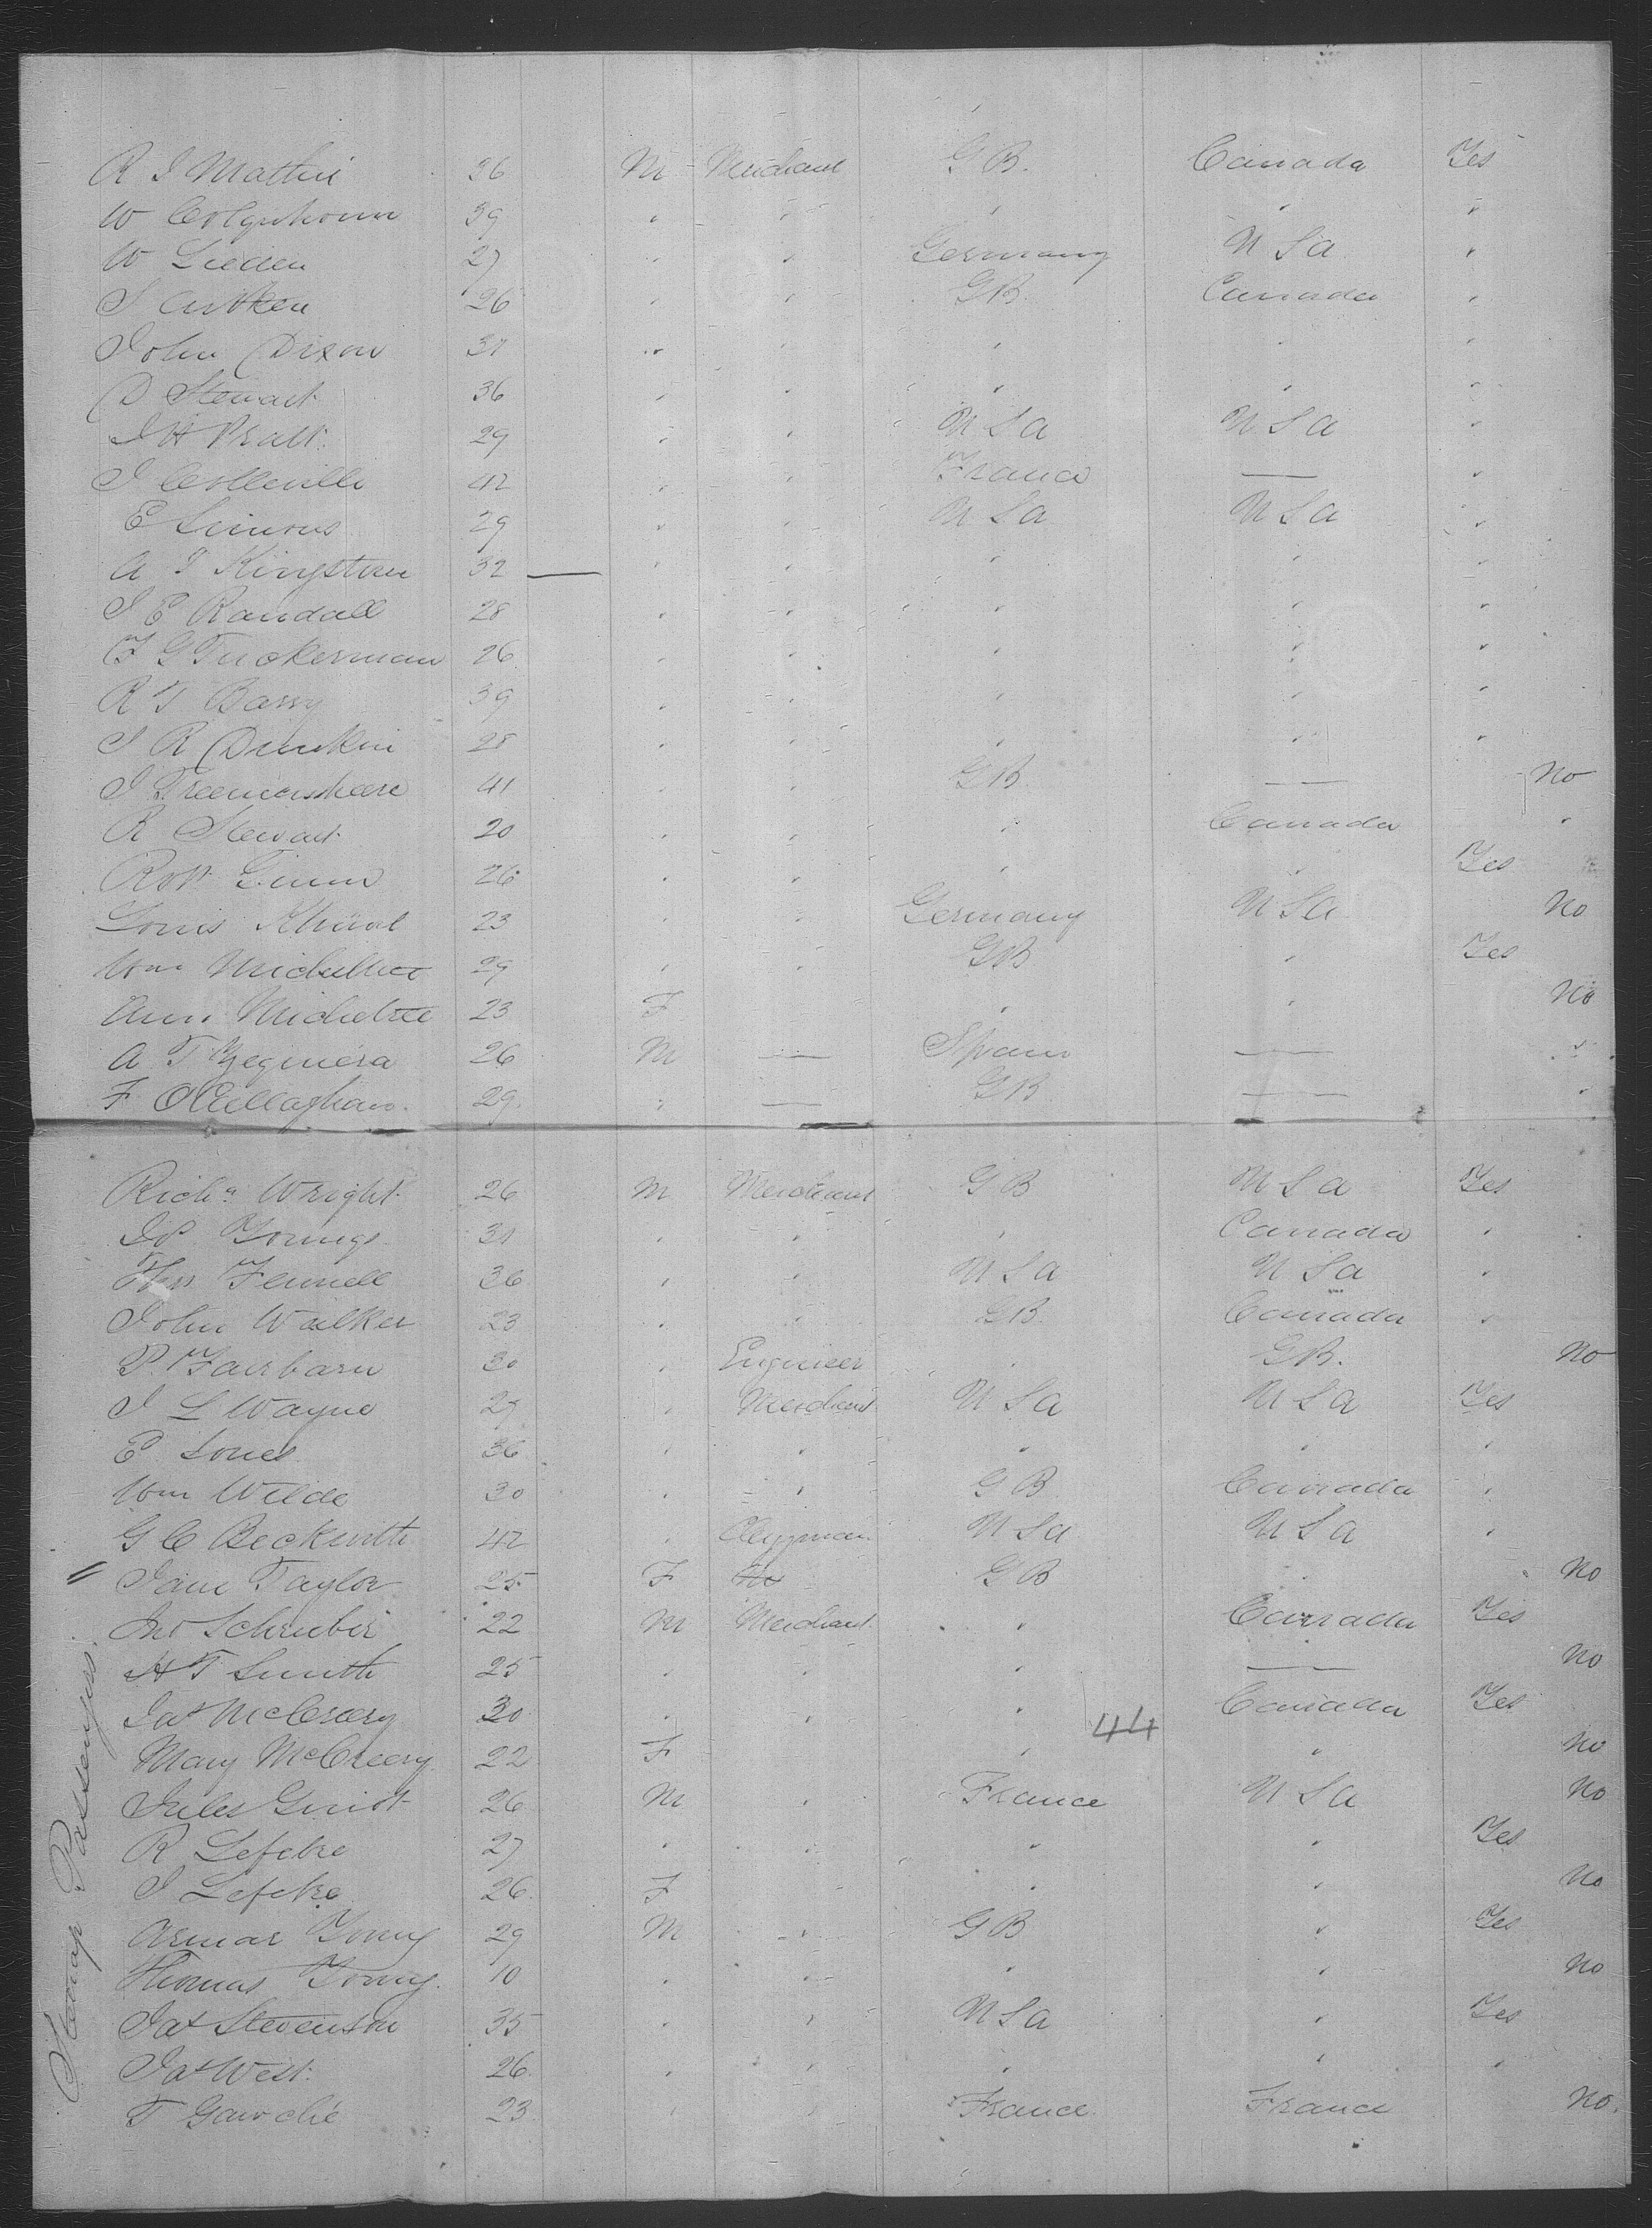 R J Mathie 36 M Merchant G B. Canada Yes
W Colquhoun 39 " " " " "
W 27 " " Germany U S A "
J Aitken 26 " " G B. Canada "
John Dixon 31 " " " " "
D Stewart 36 " " " " "
J H Pratt 29 " " U S A U S A "
J Colleville 42 " " France — "
E Simons 29 " " U S A U S A "
A J Kingstone 32 — " " " " "
J E Randall 28 " " " " "
F G Tuckerman 26 " " " " "
R T Barry 39 " " " " "
J R Dunkin 28 " " " " "
J 41 " " G B. — No
R Stewart 20 " " " Canada "
Robt 26 " " " " Yes
Louis 23 " " Germany U S A No
Wm 29 " " G B " Yes
Ann 23 F " " No
A T 26 M — Spain — "
F O'Callaghan 29 " — G B — "
Richd Wright 26 M Merchant G B U S A Yes
J P. Youngs 31 " " " Canada "
Thos Fennell 36 " " U S A U S A "
John Walker 23 " " G B. Canada "
P. Fairbarn 30 " Engineer " G B. No
J L Wayne 29 " Merchant U S A U S A Yes
E Jones 36 " " " " "
Wm Wilde 30 " " G B Canada "
G C Beckwith 42 " Clergyman U S A U S A "
" Jane Taylor 25 F G B " No
Jno Schreiber 22 M Merchant " Canada Yes
H T Smith 25 " " " — No
Jas McCreery 30 " " " 44 Canada Yes
Mary McCreery 22 F " " No
Jules Guiot 26 M " France U S A No
R Lefebre 27 " " " " Yes
J Lefebre 26 F " " " No
Young 29 M " G B " Yes
Thomas Young 10 " " " " No
Jas Stevenson 35 " " U S A " Yes
Jas West 26 " " " " "
T 23 " " France France No.
Steerage Passengers